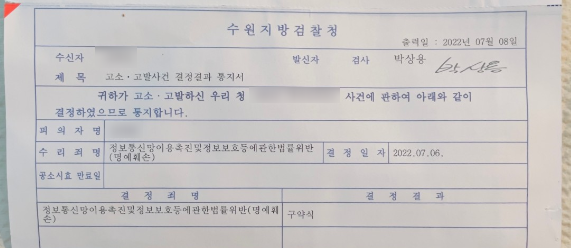 수원지방검찰청
출력일 : 2022년 07월 08일
수신자 발신자 검사 박상용
제 목 고소·고발사건 결정결과 통지서
귀하가 고소·고발하신 우리 청 사건에 관하여 아래와 같이
결정하였으므로 통지합니다.
피 의 자 명
수 리 죄 명 정보통신망이용촉진및정보보호등에관한법률위반
(명예훼손) 결 정 일 자 2022.07.06.
공소시효 만료일
결 정 죄 명 결 정 결 과
정보통신망이용촉진및정보보호등에관한법률위반(명예훼
손) 구약식